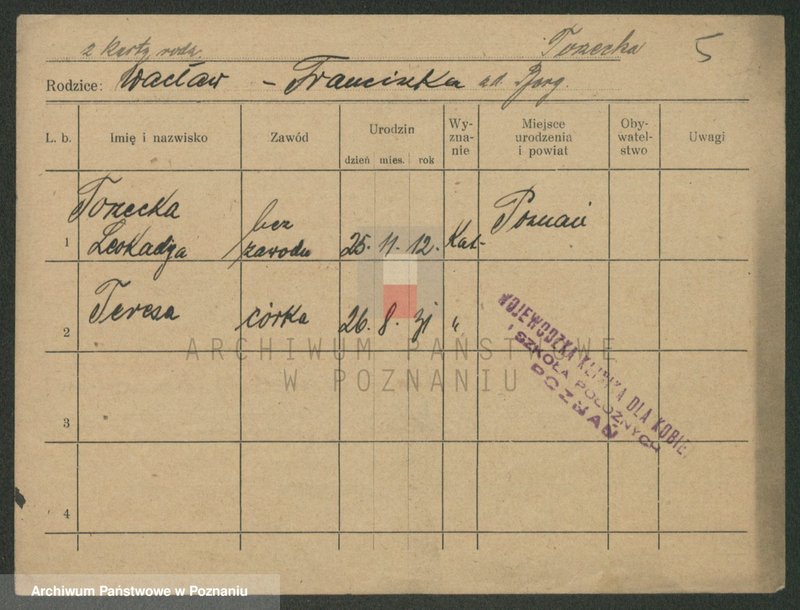 z karty rodz. Tonecka 5
Rodzice: Wacław – Franciszka
L. b. Imię i nazwisko Zawód Urodzin dzień mies. rok Wy-zna-nie Miejsce urodzenia i powiat Oby-watel-stwo Uwagi
Tonecka
1 Leokadya bez zawodu 25. 11. 12. Kat- Poznań
2 Teresa córka 26. 8. 31 "
3
4
WOJEWÓDZKA KLINIKA DLA KOBIET
I SZKOŁA POŁOŻNYCH
POZNAŃ
ARCHIWUM PAŃSTWOWE
W POZNANIU
Archiwum Państwowe w Poznaniu